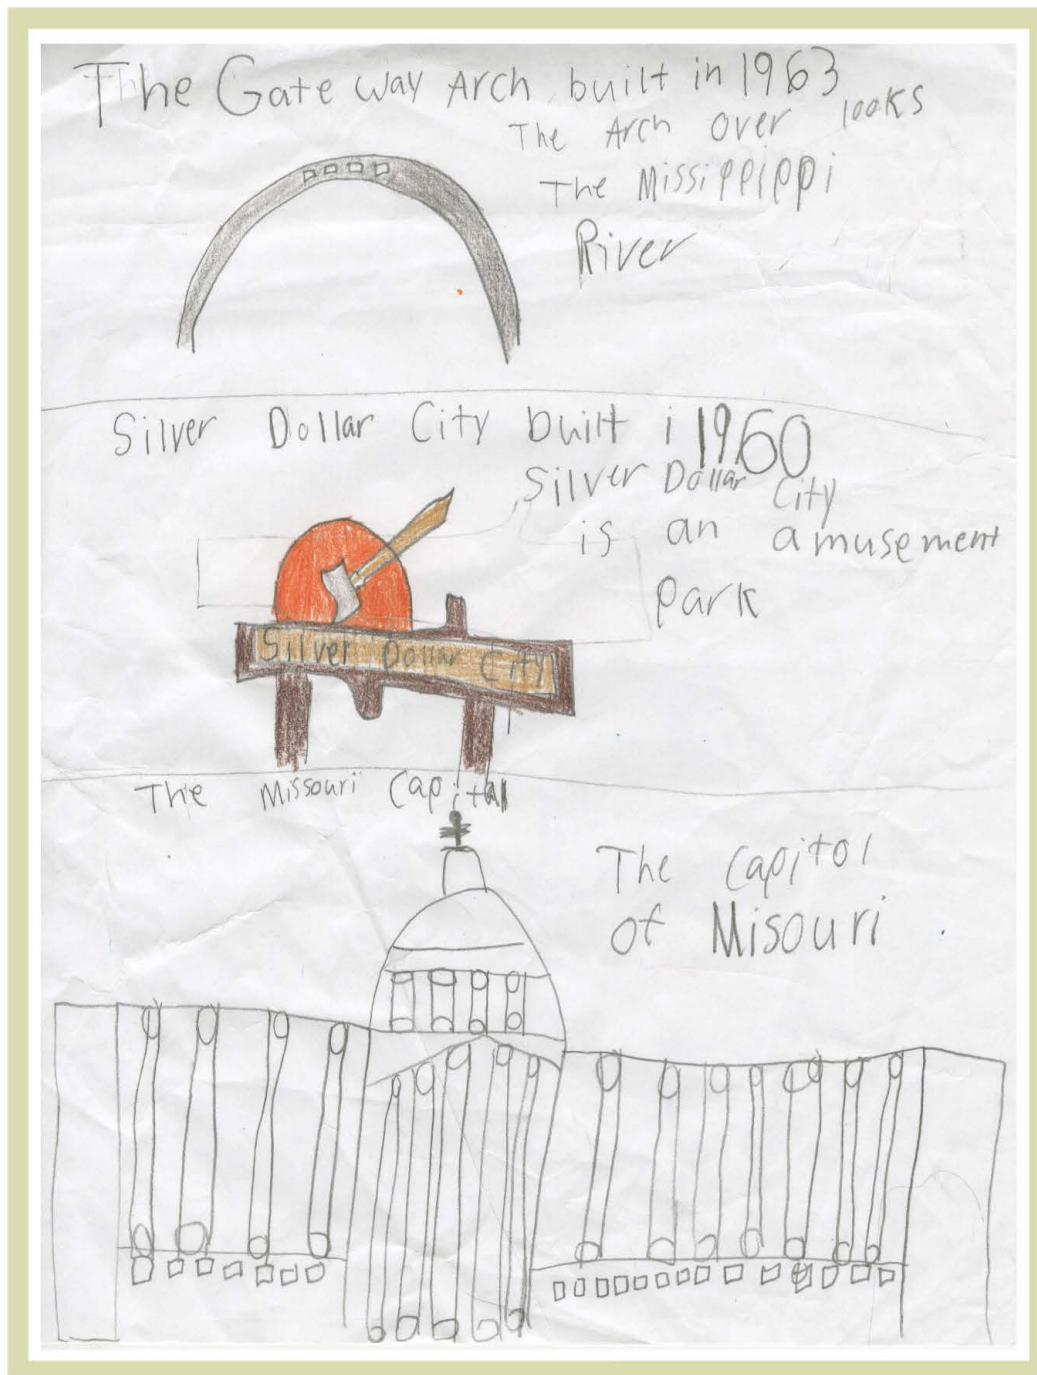 The Gate way Arch built in 1963
The Arch over looks
The Missippippi
River
Silver Dollar City built i 1960
Silver Dollar City
is an amusement
park
Silver Dollar City
The Missouri Capital
The capitol
of Misouri